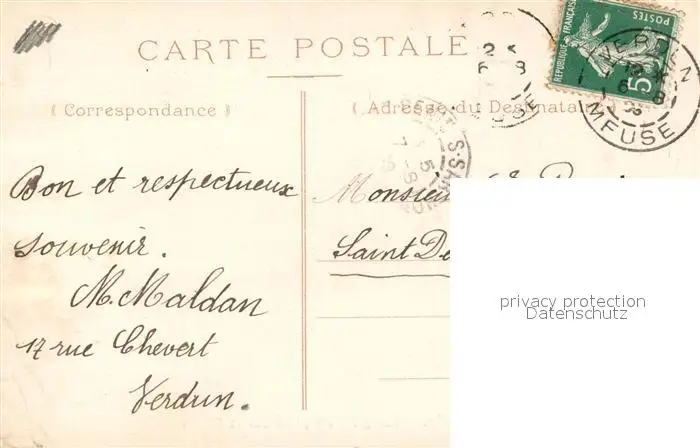 CARTE POSTALE
RÉPUBLIQUE FRANÇAISE
POSTES
5
VERDUN
MEUSE
Correspondance
Adresse du Destinataire
Bon et respectueux
souvenir.
M. Maldan
17 rue Chevert
Verdun.
Monsieur
Saint De
privacy protection
Datenschutz